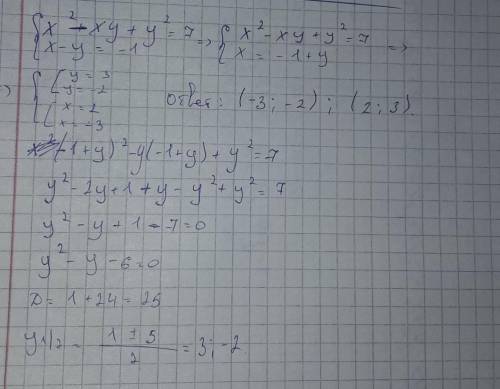 {x² - xy + y² = 7 => {x² - xy + y² = 7
{x - y = -1 {x = -1 + y =>
{[y = 3
[y = -2
[x = 2
[x = -3
Ответ: (-3; -2); (2; 3).
(-1+y)² - y(-1+y) + y² = 7
y² - 2y + 1 + y - y² + y² = 7
y² - y + 1 - 7 = 0
y² - y - 6 = 0
D = 1 + 24 = 25
y1/2 = (1 ± 5)/2 = 3; -2